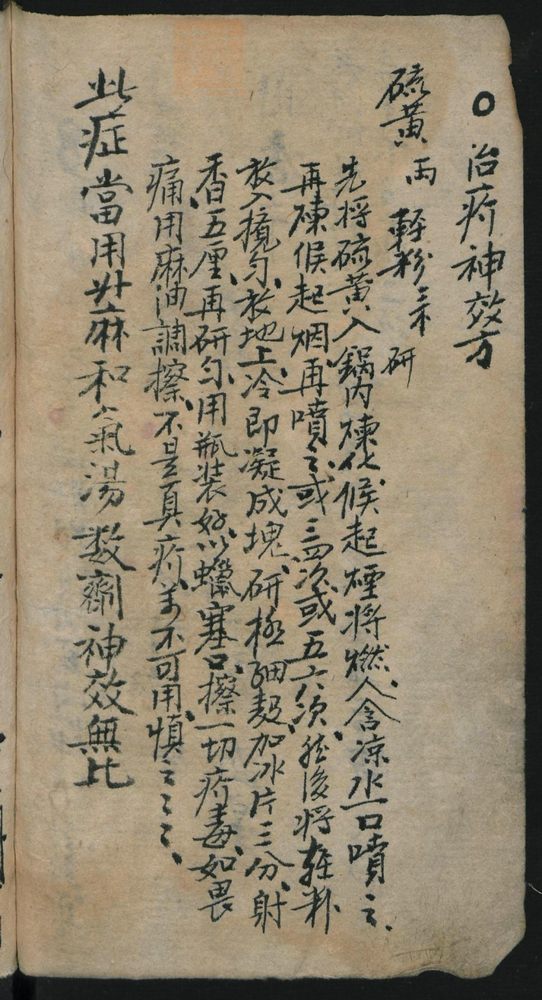 ○治疥神效方
硫黃両 輕粉三錢 研
先将硫黃入鍋内煉化候起煙将燃人含凉水一口噴之、
再煉候起烟再噴之或三四次或五六次然後将輕粉
放入攪匀放地上冷即凝成塊研極細麪加冰片三分射
香五厘再研匀用瓶装好以蠟塞口擦一切疥毒如畏
痛用麻油調擦不是真疥萬不可用慎之之之、
此症當用升麻和氣湯数劑神效無比